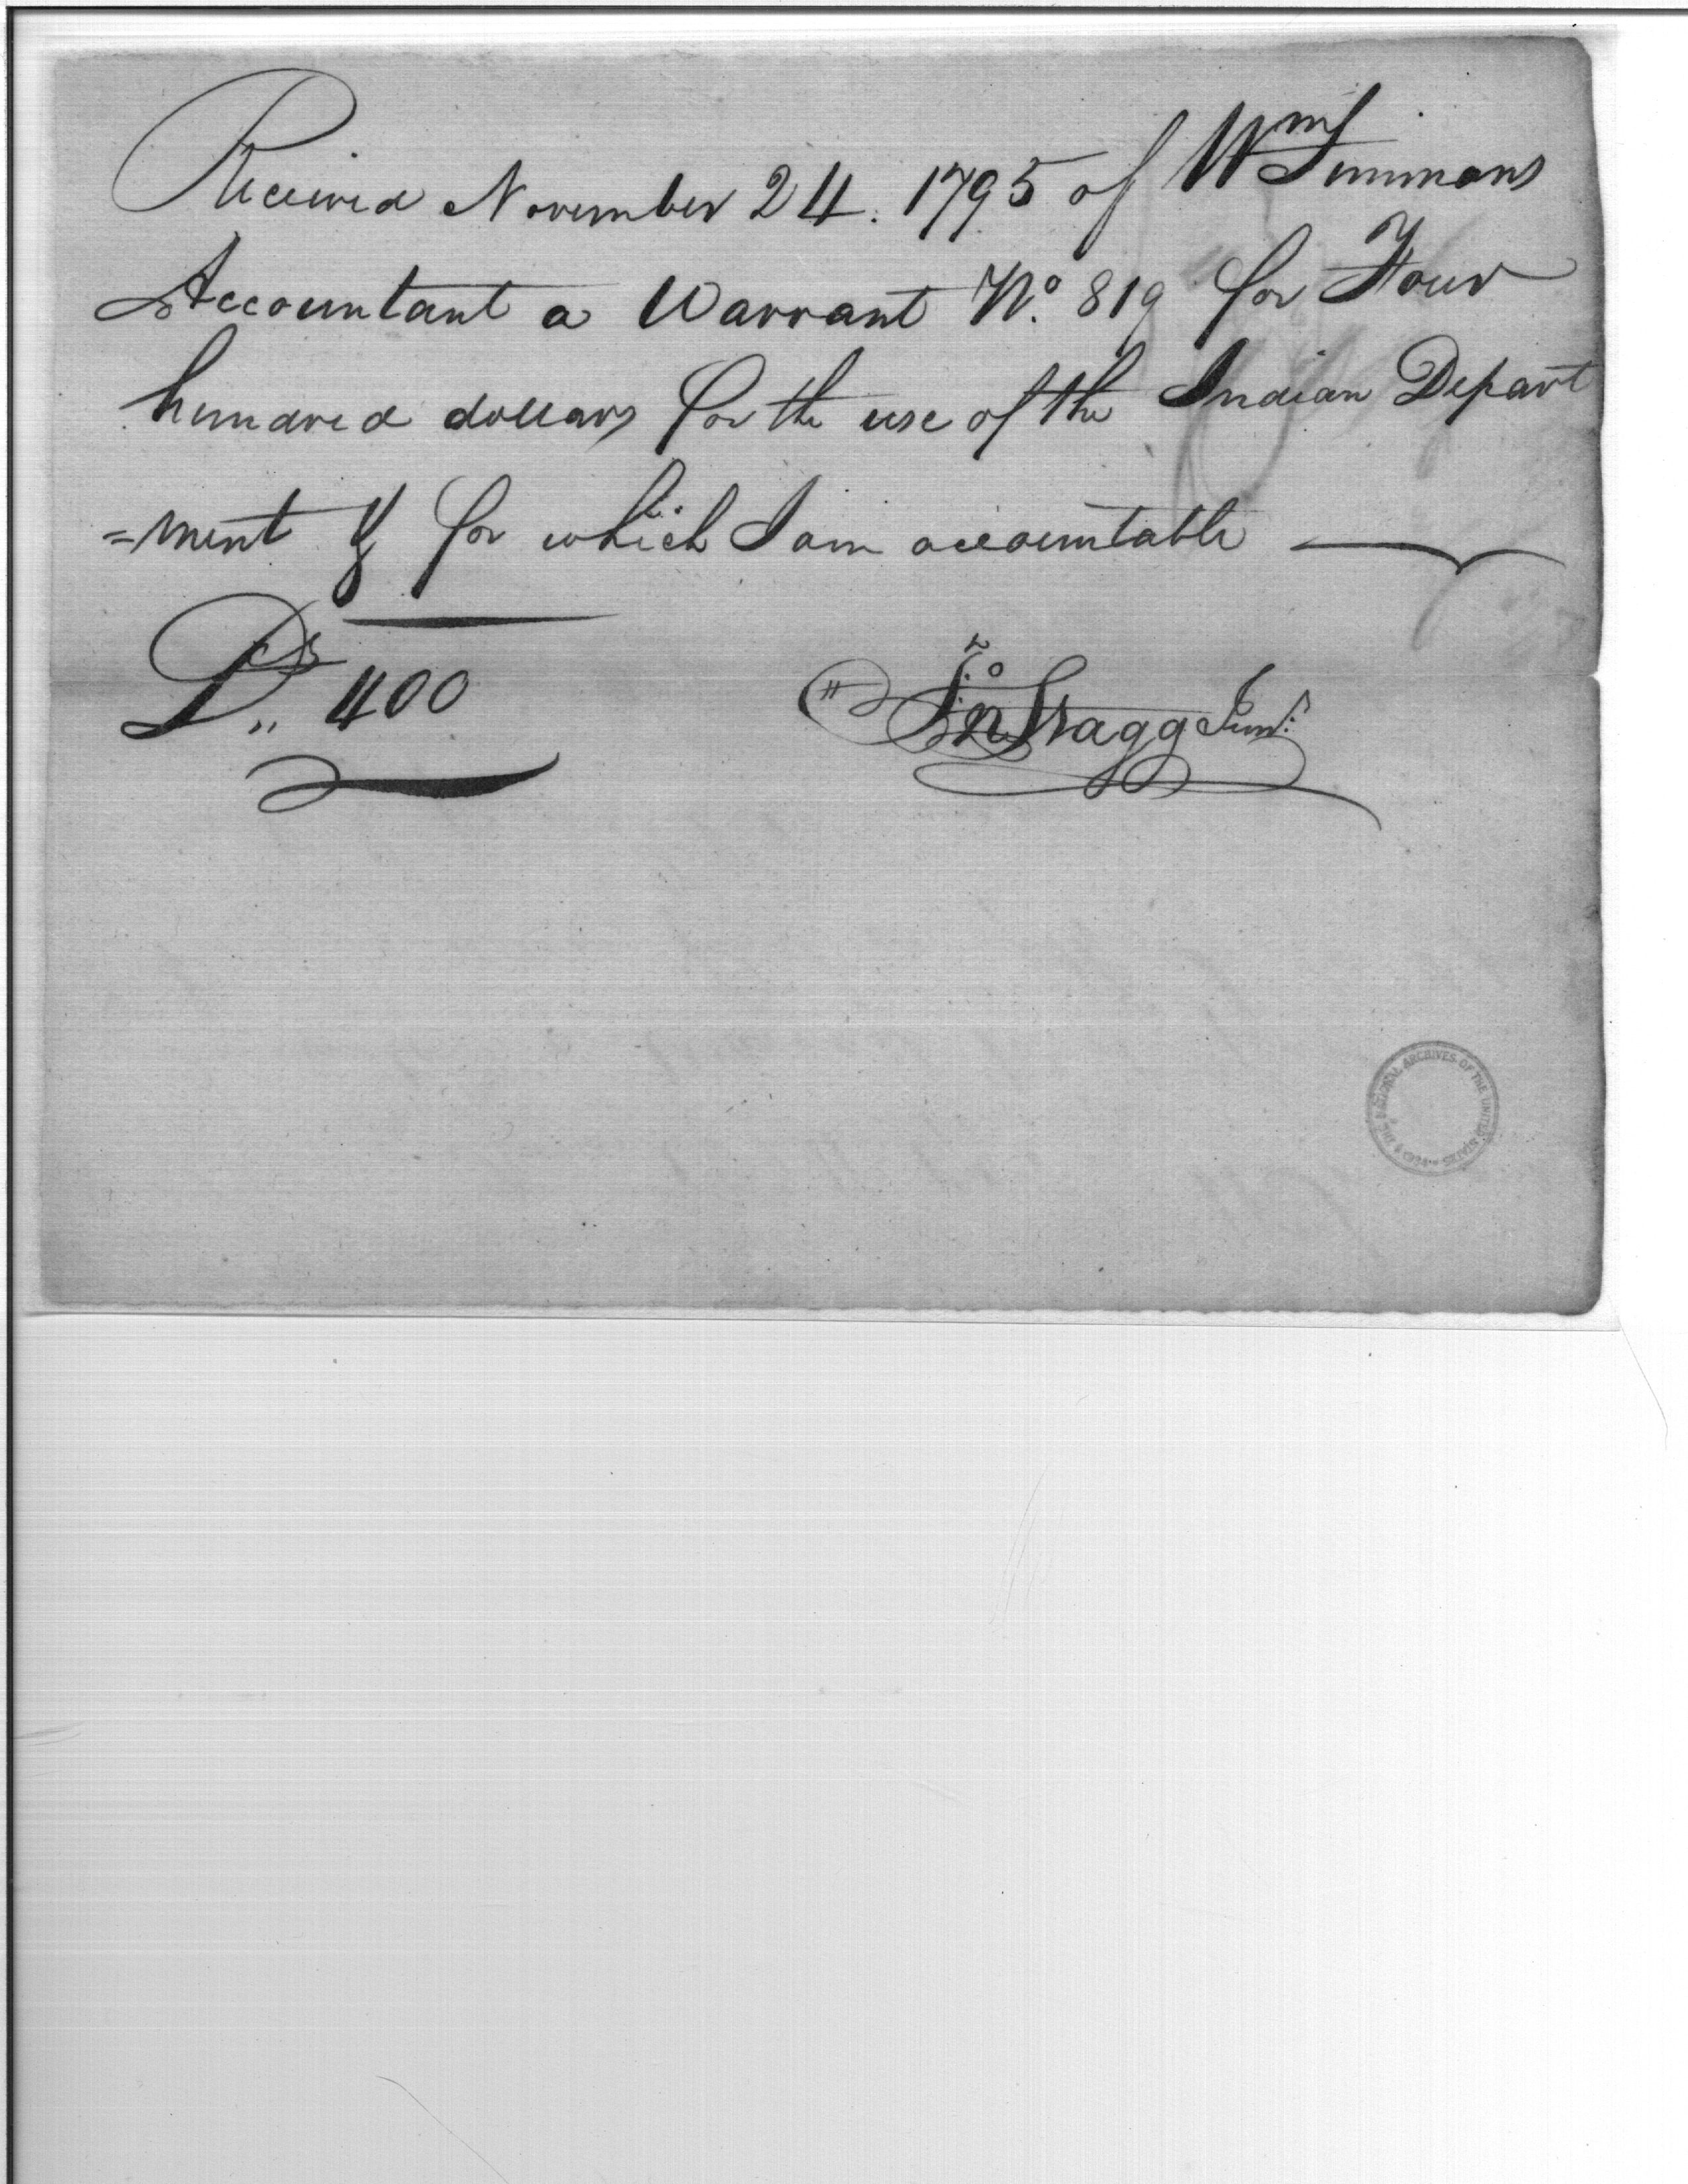 Received November 24. 1795 of Wm Simmons
Accountant a Warrant No. 819 for Four
hundred dollars for the use of the Indian Depart
=ment & for which I am accountable
Drs 400
Jno Stagg Junr.
ARCHIVES OF THE UNITED STATES